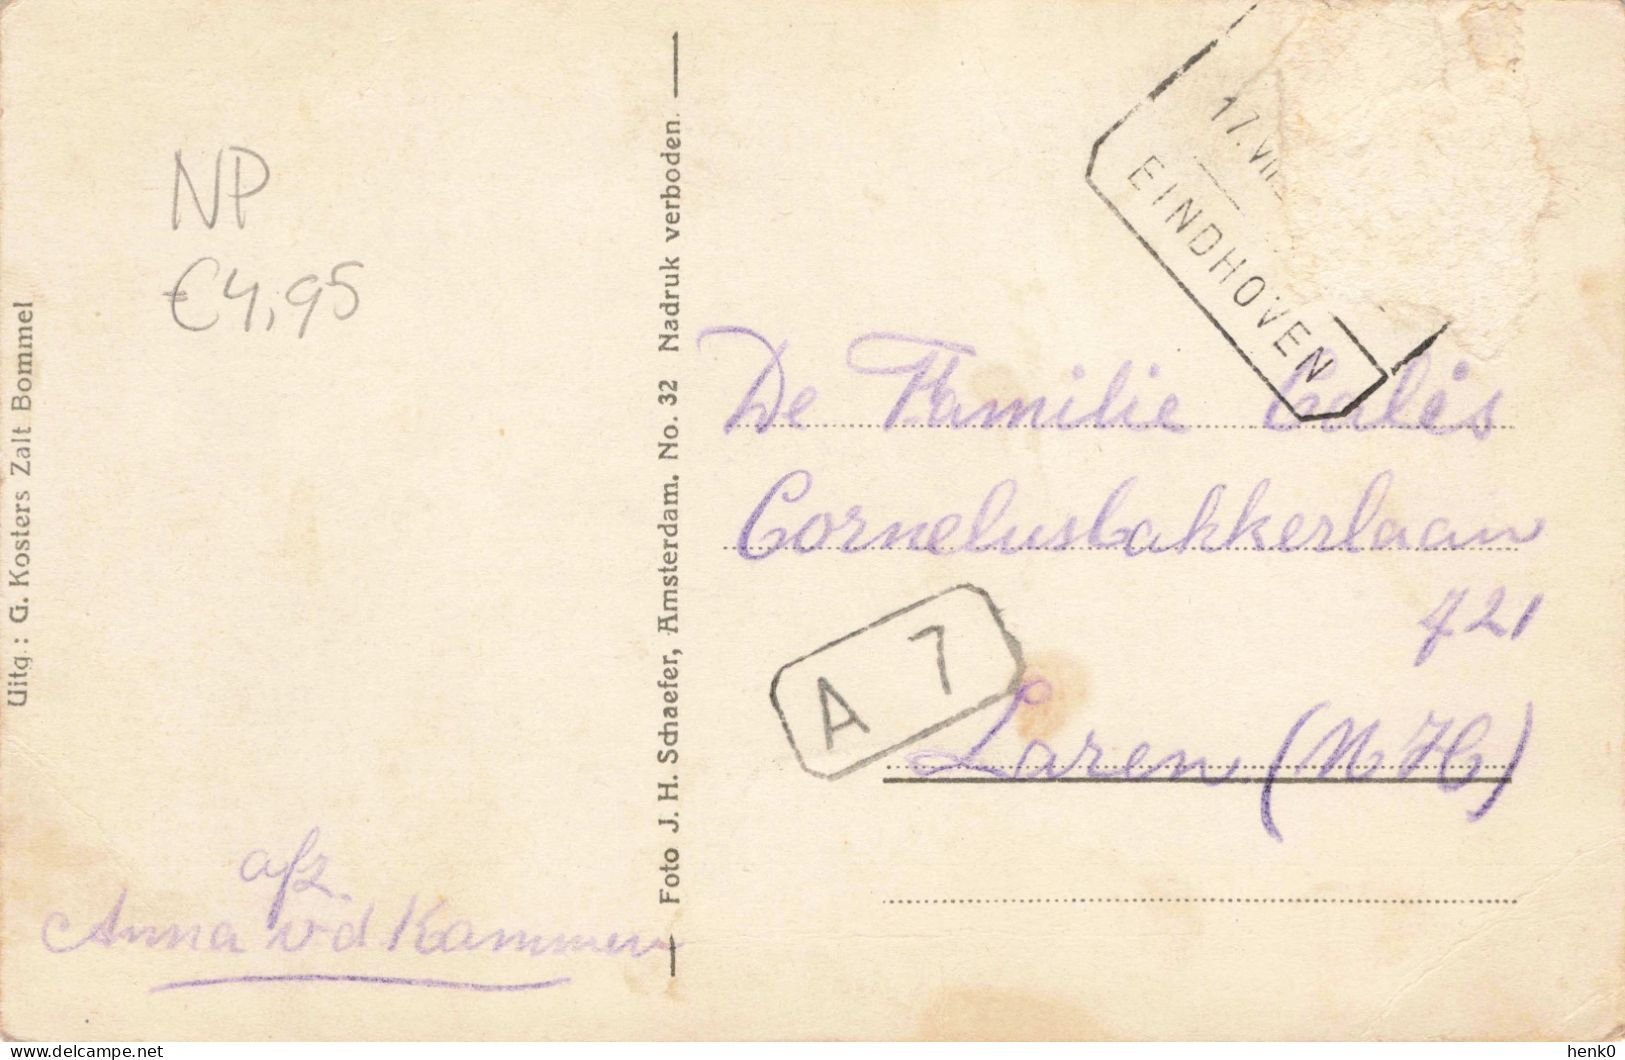 NP
€4,95
Uitg.: G. Kosters Zalt Bommel
afz.
Anna v.d Kammen
Foto J. H. Schaefer, Amsterdam. No. 32 Nadruk verboden.
17.VII
EINDHOVEN
De Familie Calis
Cornelusbakkerlaan
721
A 7
Laren (NH)
delcampe.net
henk0